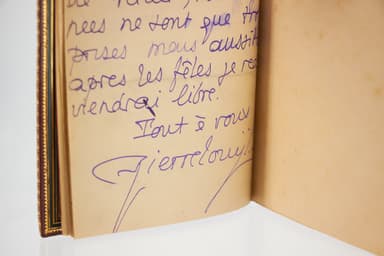 nées ne sont que
prises mais aussitôt
après les fêles je
viendrai libre.
Tout à vous
Pierre Louÿs